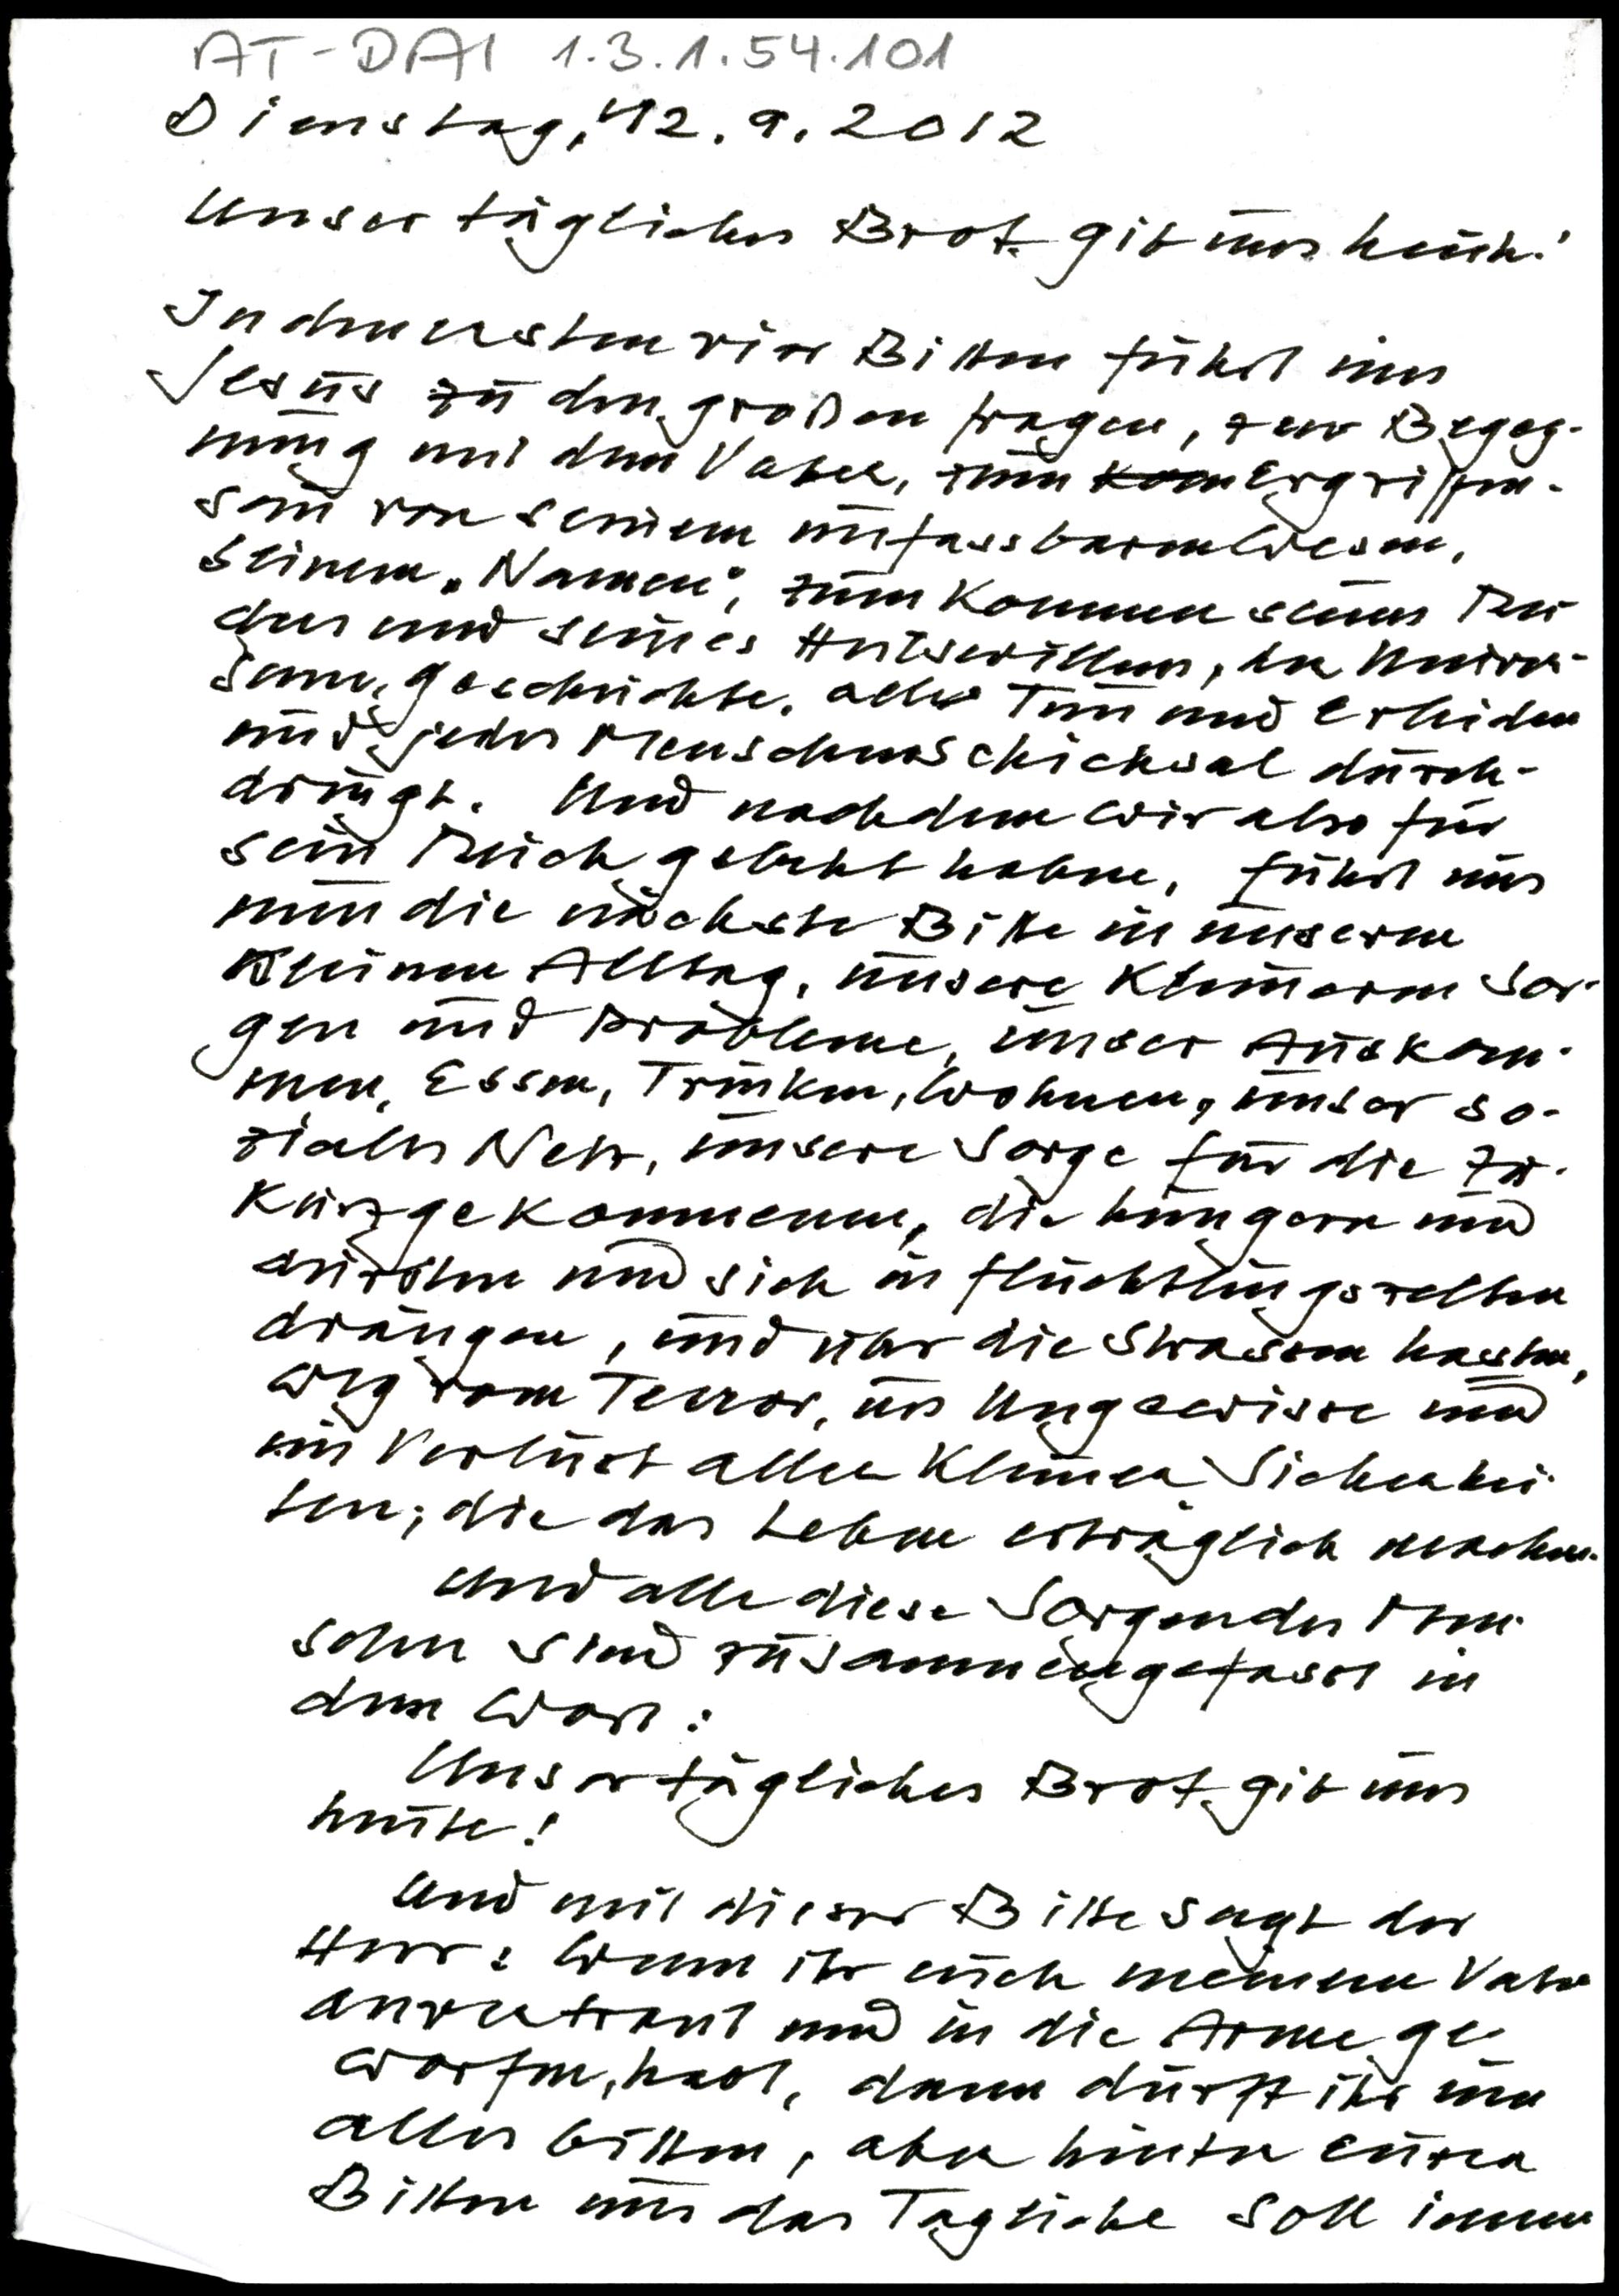 AT-DAI 1.3.1.54.101
Dienstag, 12.9.2012
Unser tägliches Brot gib uns heute!
In den ersten vier Bitten führt uns
Jesus zu den großen Fragen, zur Begeg-
nung mit dem Vater, zum Ergriffen-
sein von seinem unfassbaren Wesen,
seinem „Namen", zum Kommen seines Rei-
ches und seines Heilswillens, der Univer-
sum, Geschichte, alles Tun und Erleiden
und jedes Menschenschicksal durch-
dringt. Und nachdem wir also für
sein Reich gebetet haben, führt uns
nun die nächste Bitte in unseren
kleinen Alltag, unsere kleineren Sor-
gen und Probleme, unser Auskom-
men, Essen, Trinken, Wohnen, unser so-
ziales Netz, unsere Sorge für die Zu-
kurzgekommenen, die hungern und
dürsten und sich in Flüchtlingszelten
drängen, und über die Strassen hasten,
weg vom Terror, ins Ungewisse und
in Verlust aller kleinen Sicherhei-
ten, die das Leben erträglich machen.
Und alle diese Sorgen des Men-
schen sind zusammengefasst in
dem Wort:
Unser tägliches Brot gib uns
heute!
Und mit dieser Bitte sagt der
Herr: Wenn ihr euch meinem Vater
anvertraut und in die Arme ge-
worfen habt, dann dürft ihr um
alles bitten, aber hinter euren
Bitten um das Tägliche soll immer